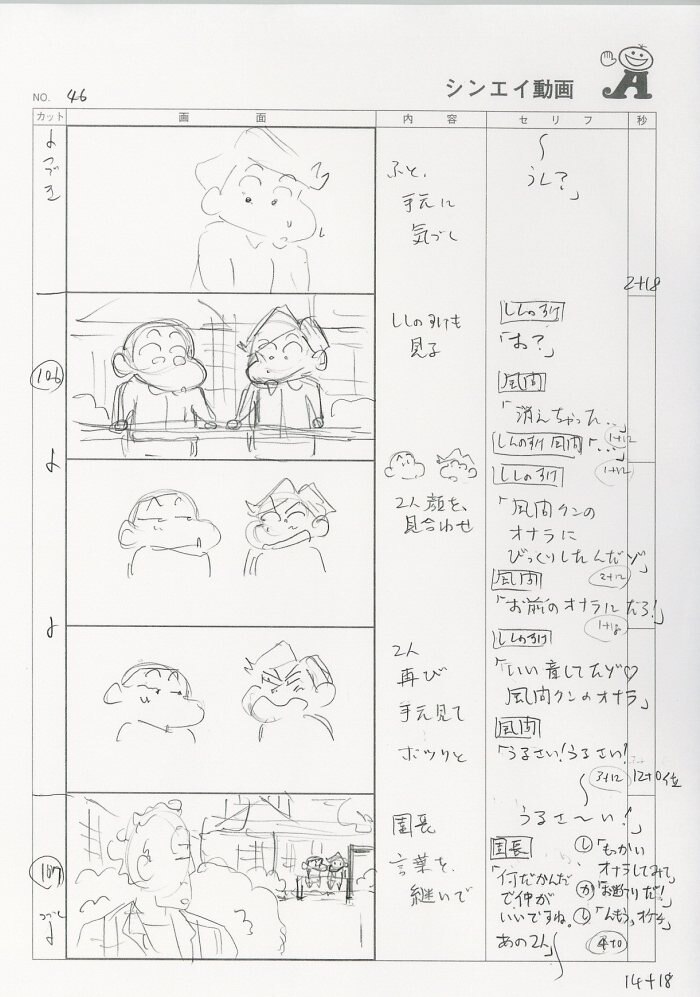 シンエイ動画
NO. 46
カット
画面
内容
セリフ
秒
つづき
ふと、
手元に
気づく
うん?」
2+18
106
しんのすけも
見る
しんのすけ
「お?」
風間
「消えちゃった…」
1+12
しんのすけ 風間 「…」
1+12
2人顔を、
見合わせ
しんのすけ
「風間クンの
オナラに
びっくりしたんだゾ」
2+12
風間
「お前のオナラにだろ!」
1+18
2人
再び
手元見て
ポツリと
しんのすけ
「いい音してたゾ♡
風間クンのオナラ」
風間
「うるさい!うるさい!
3+12
12+0位
うるさ〜い!」
107
つづく
園長
言葉を、
継いで
園長
「何だかんだ
で仲が
いいですね。
あの2人」
し「もっかい
オナラしてみて」
か「お断りだ!」
し「んもう、オケチ」
4+0
14+18